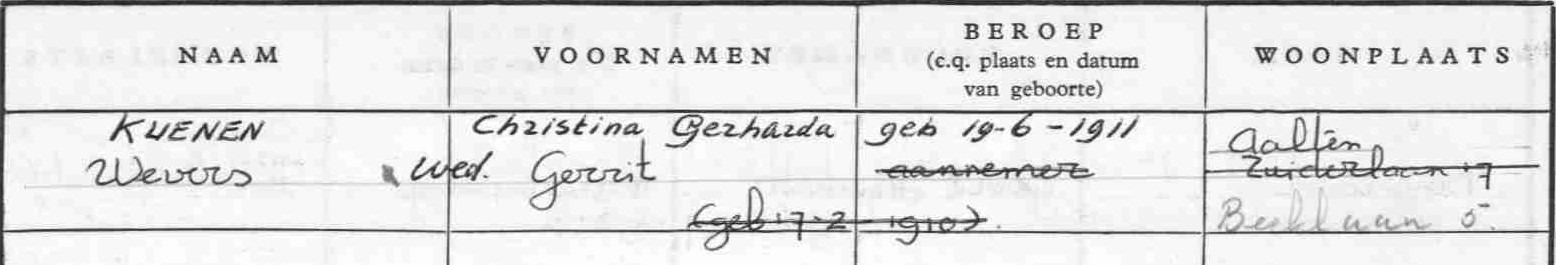 NAAM VOORNAMEN BEROEP (c.q. plaats en datum van geboorte) WOONPLAATS
KUENEN Christina Gerharda geb 19-6-1911 Aalten
Wevers wed. Gerrit aannemer Zuiderlaan 17
(geb 17-2-1910). 5.